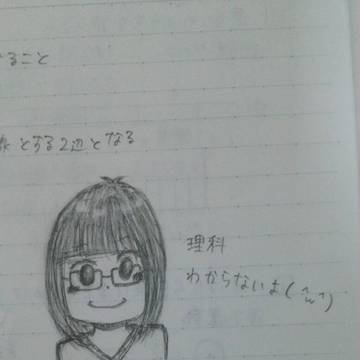 ること
とする2辺となる
理科
わからないよ(^ω^)